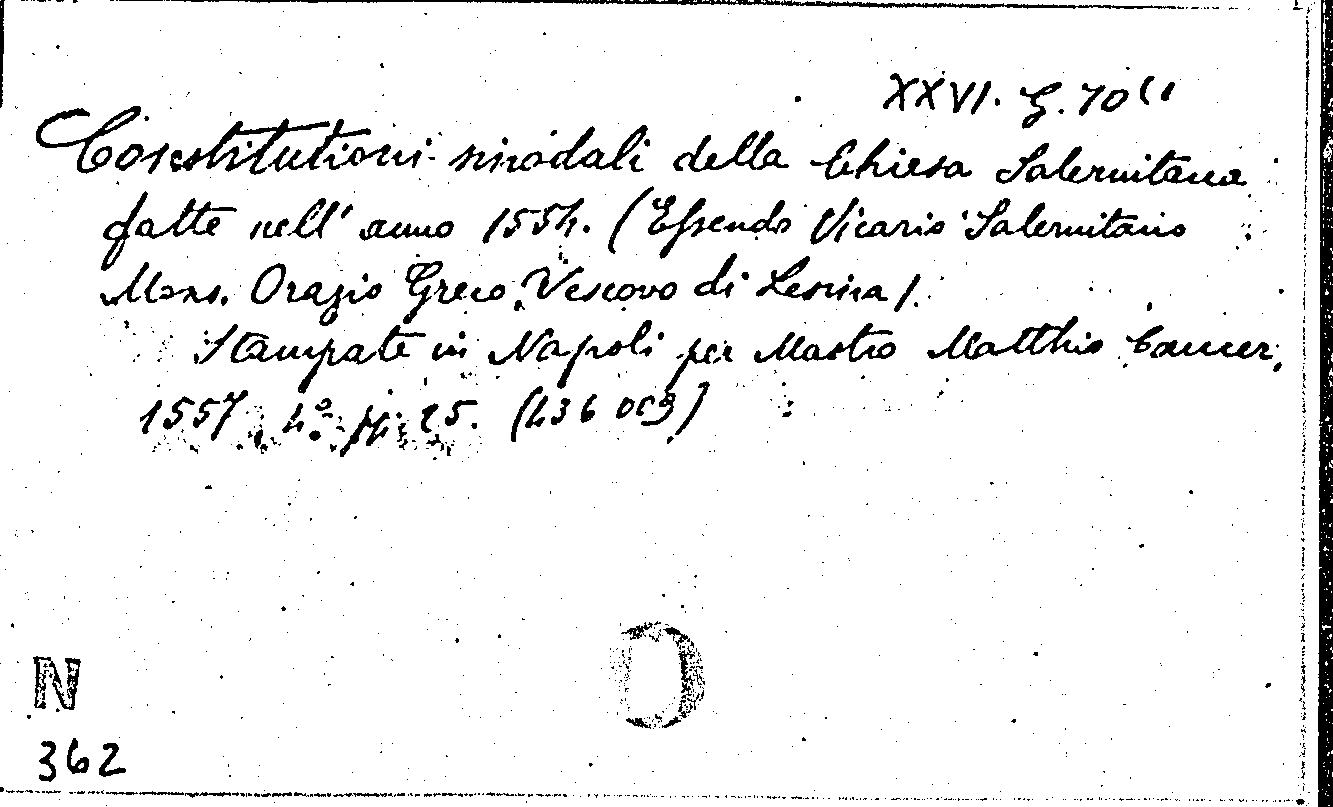 XXVI. G. 70 (1
Constitutioni sinodali della Chiesa Salernitana
fatte nell' anno 1554. (Essendo Vicario Salernitano
Mons. Orazio Greco, Vescovo di Lesina).
Stampate in Napoli per Mastro Matthio Cancer,
1557, 4º pp. 25. (436 009)
O
N
362